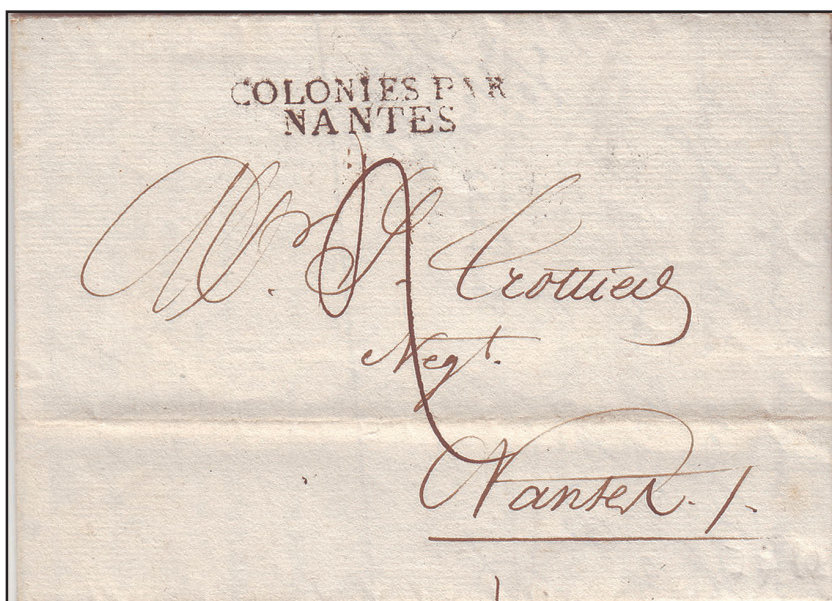 COLONIES PAR
NANTES
Mr. J. Trottier
Negt.
Nantes